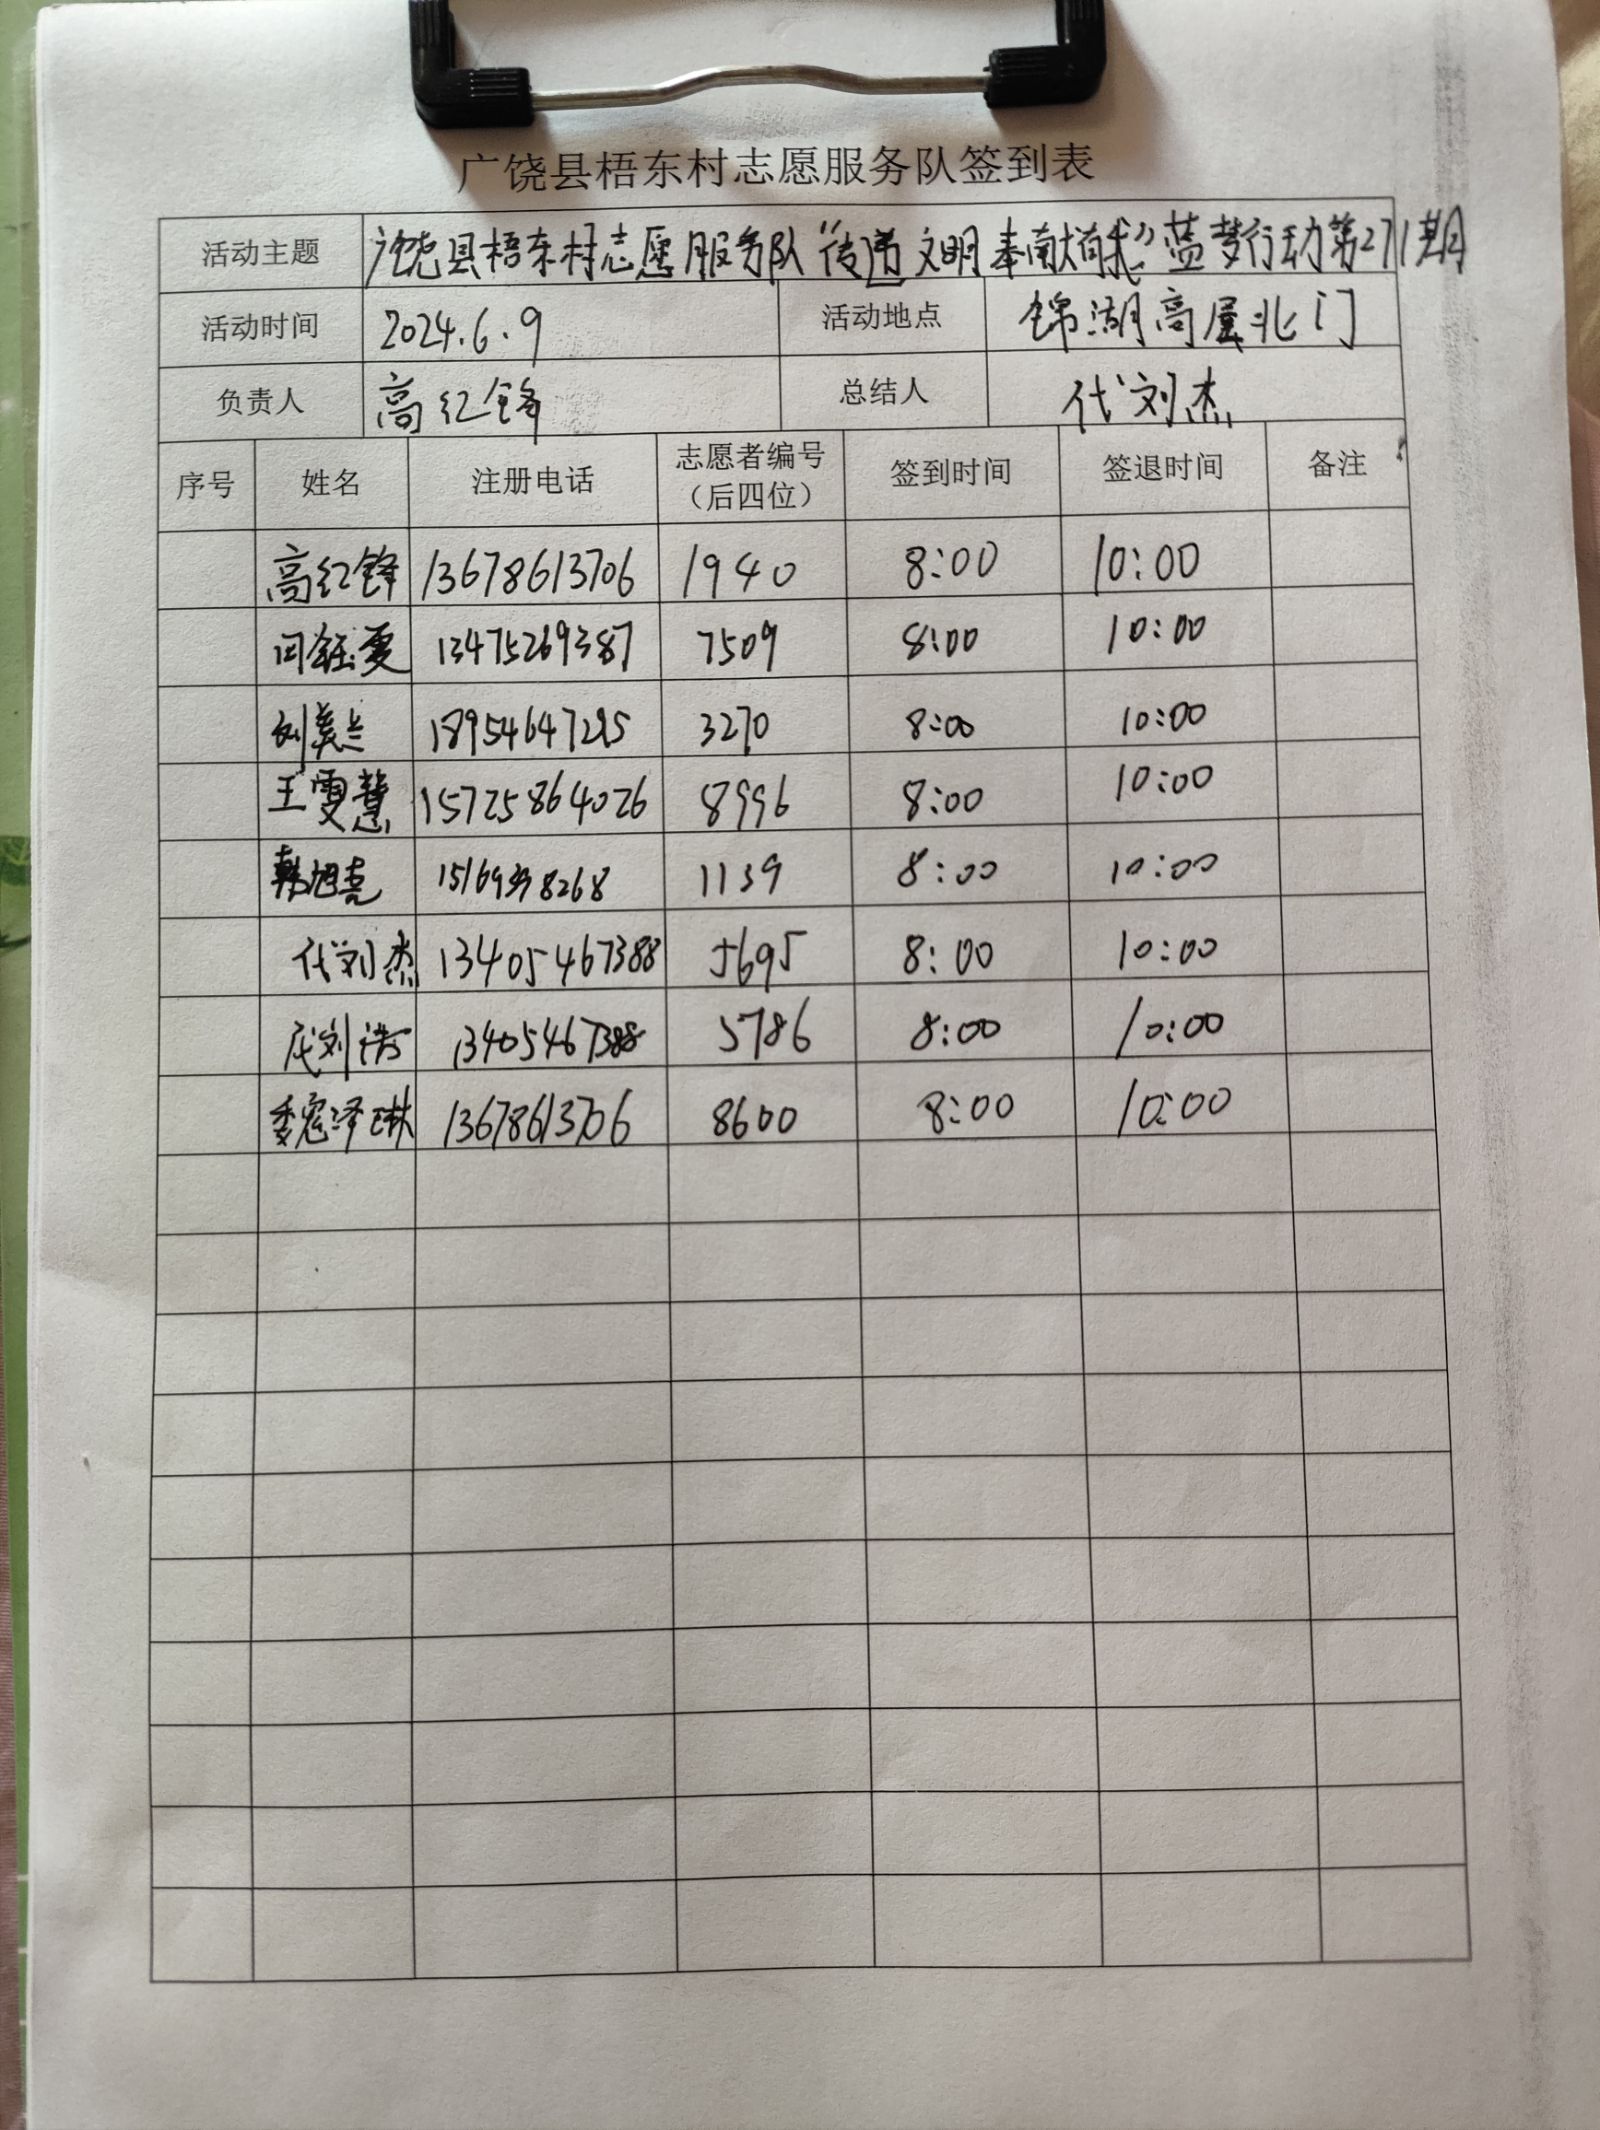 广饶县梧东村志愿服务队签到表
活动主题 广饶县梧东村志愿服务队“传递文明奉献有我”蓝梦行动第271期
活动时间 2024.6.9 活动地点 锦湖高屋北门
负责人 高红锋 总结人 代刘杰
序号 姓名 注册电话 志愿者编号（后四位） 签到时间 签退时间 备注
高红锋 13678613706 1940 8:00 10:00
闫钰雯 13475269387 7509 8:00 10:00
刘美兰 18954647215 3270 8:00 10:00
王雯慧 15725864026 8996 8:00 10:00
韩旭亮 1139 8:00 10:00
代刘杰 13405467388 5695 8:00 10:00
代刘浩 13405467388 5786 8:00 10:00
委宛泽琳 13678613706 8600 8:00 10:00